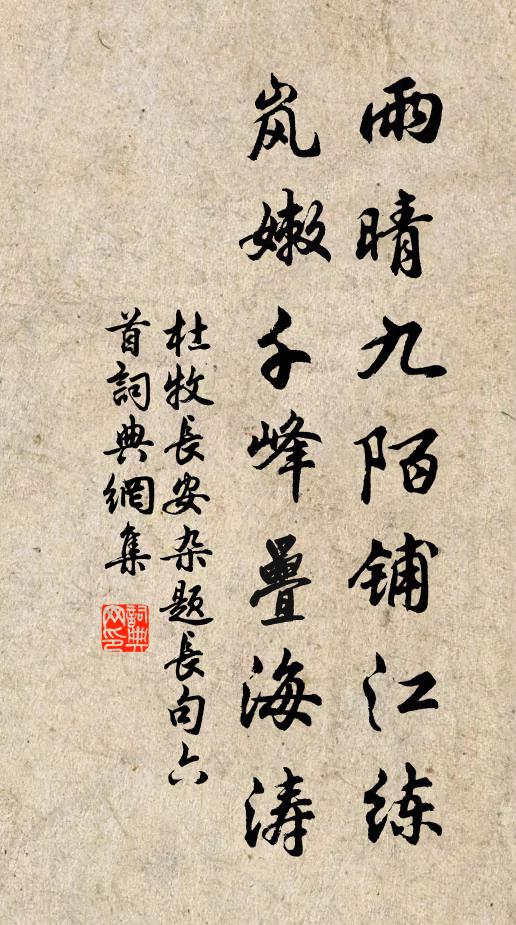 雨晴九陌铺江练
岚嫩千峰疊海涛
杜牧长安杂题长句六
首詞典網集
詞典
网印